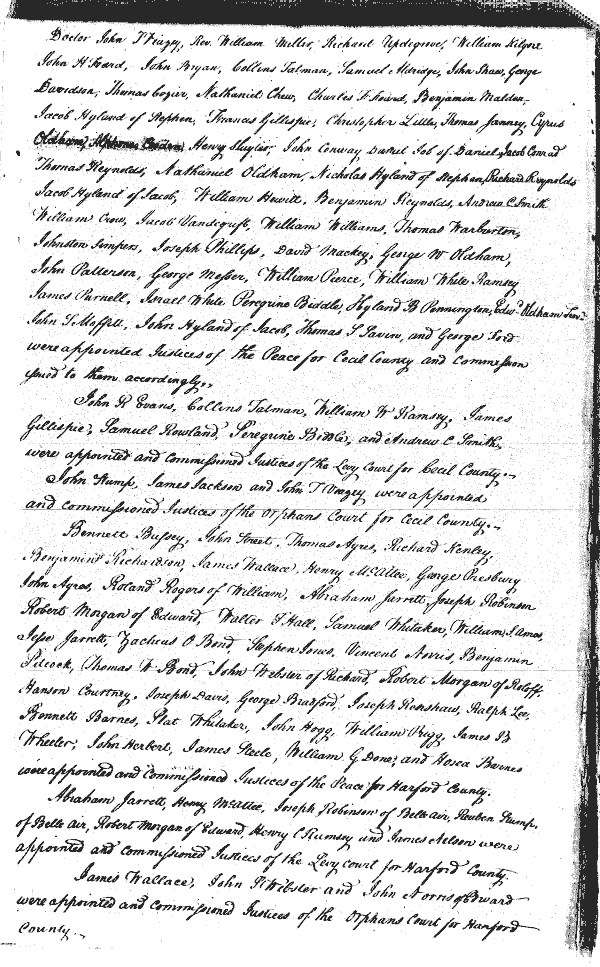 Doctor John T Veazy, Rev. William Miller, Richard Updegrove, William Kilgore
John H Foard, John Bryan, Collins Tatman, Samuel Aldridge, John Shaw, George
Davidson, Thomas Cozier, Nathaniel Chew, Charles F Foird, Benjamin Malden
Jacob Hyland of Stephen, Frances Gillespie, Christopher Little, Thomas Janney, Cyrus
Oldham, Henry Sluyter, John Conway, Daniel Job of Daniel, Jacob Conrad
Thomas Reynolds, Nathaniel Oldham, Nicholas Hyland of Stephen, Richard Reynolds
Jacob Hyland of Jacob, William Hewitt, Benjamin Reynolds, Andrew C Smith
William Crow, Jacob Vandegrift, William Williams, Thomas Warburton,
Johnston Simpers, Joseph Phillips, David Mackey, George W Oldham,
John Patterson, George Messer, William Pierce, William White Ramsey
James Purnell, Israel White Peregrine Biddle, Hyland B Pennington, Edwd Oldham Senr
John S. Moffitt, John Hyland of Jacob, Thomas S Savin, and George Ford
were appointed Justices of the Peace for Cecil County and Commission
issued to them accordingly.
John R Evans, Collins Tatman, William W Ramsey, James
Gillespie, Samuel Rowland, Peregrine Biddle, and Andrew C Smith,
were appointed and commissioned Justices of the Levy Court for Cecil County.
John Stump, James Jackson and John T Veazey were appointed
and commissioned Justices of the Orphans Court for Cecil County.
Bennett Bussey, John Street, Thomas Ayres, Richard Henley,
Benjamin Richardson, James Wallace, Henry McAtee, George Presbury
John Ayres, Roland Rogers of William, Abraham Jarrett, Joseph Robinson
Robert Morgan of Edward, Walter T Hall, Samuel Whitaker, William S. Amos,
Jesse Jarrett, Zacheus O Bond, Stephen Jones, Vincent Norris, Benjamin
Pidcock, Thomas W Bond, John Webster of Richard, Robert Morgan of Roloff
Hanson Courtney, Joseph Davis, George Bradford, Joseph Renshaw, Ralph Lee,
Bennett Barnes, Plat Whitaker, John Hogg, William Prigg, James B
Wheeler, John Herbert, James Steele, William G Dove, and Hosea Barnes
were appointed and Commissioned Justices of the Peace for Harford County.
Abraham Jarrett, Henry McAtee, Joseph Robinson of Bell air, Reuben Stump,
of Belle air, Robert Morgan of Edward, Henry C Rumsey and James Nelson were
appointed and commissioned Justices of the Levy court for Harford County.
James Wallace, John W Webster and John Norris of Edward
were appointed and commissioned Justices of the Orphans Court for Harford
County.